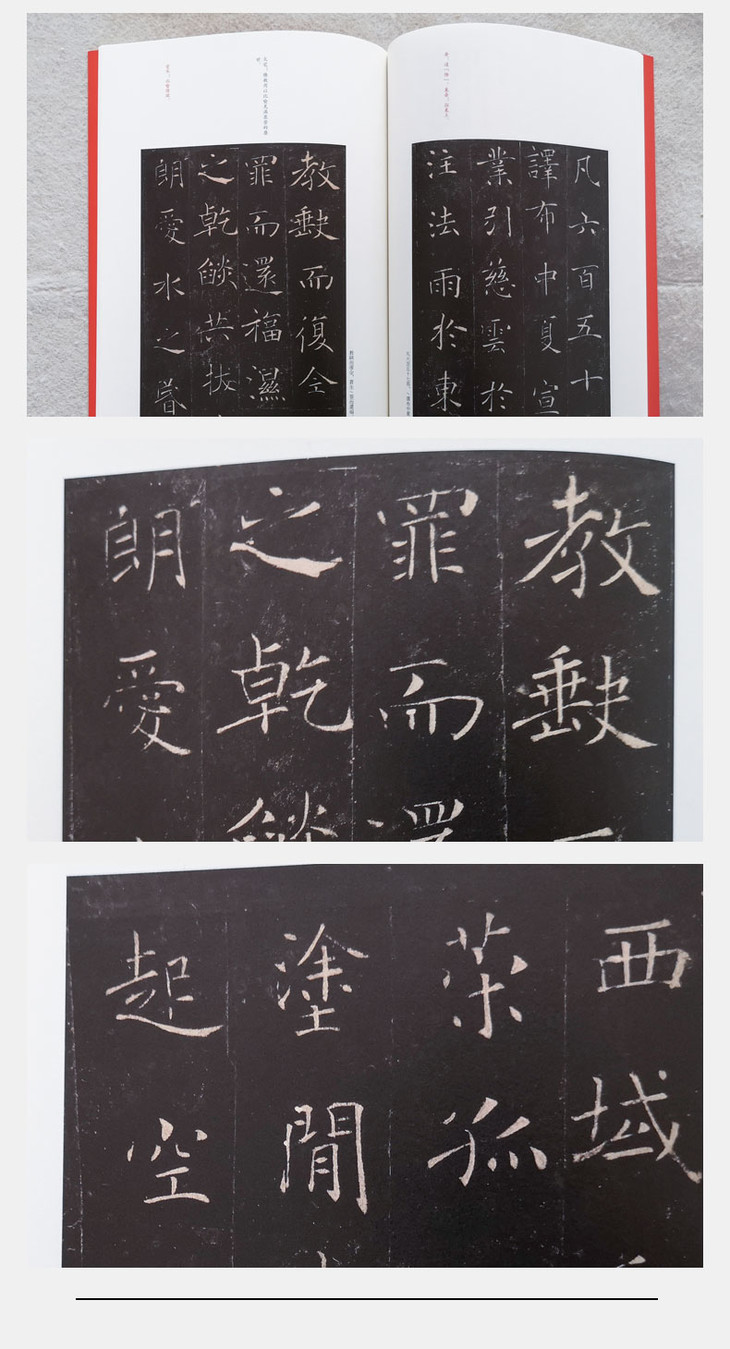 凡六百五十
譯布中夏宣
業引慈雲於
注法雨於東
教缺而復全
罪而還福濕
之乾燄共拔
朗愛水之昬
教缺
罪而還
之乾燄
朗愛
西域
策孤
塗閒
起空